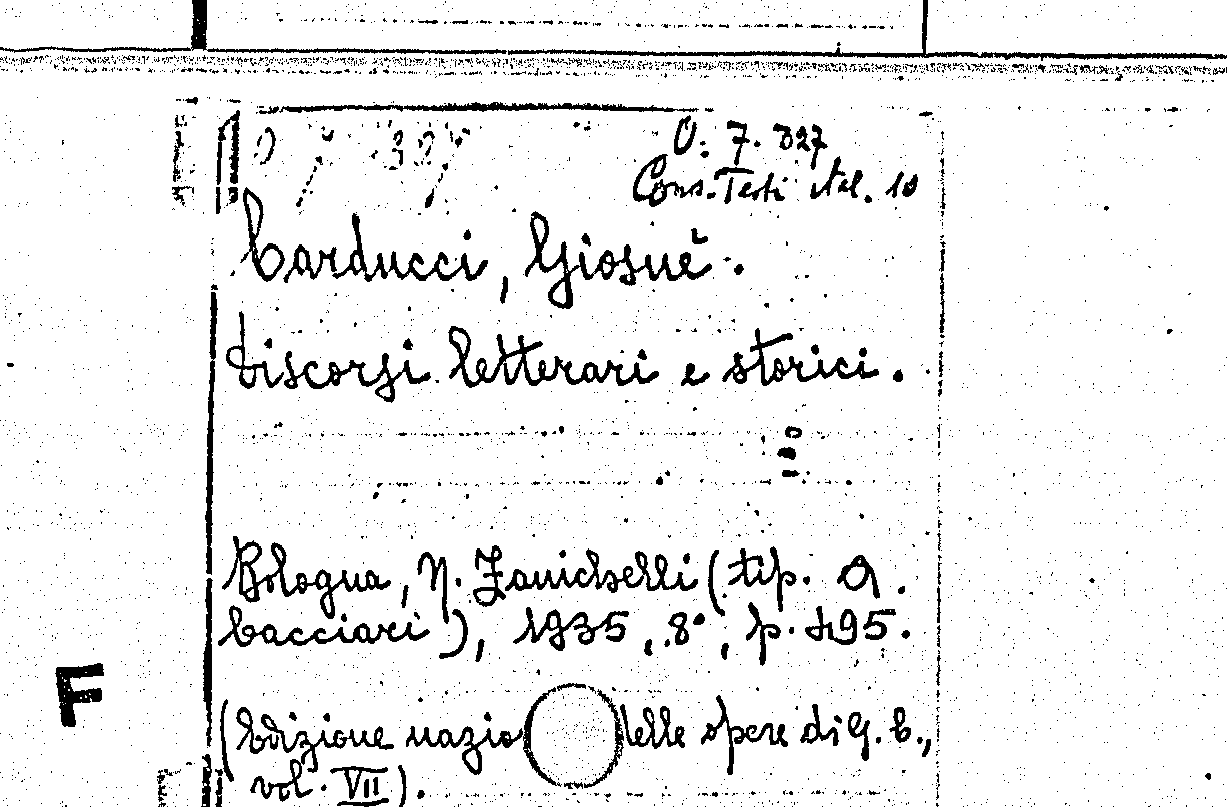 O. 7. 327
Cons. Testi ital. 10
Carducci, Giosuè.
Discorsi letterari e storici.
Bologna, N. Zanichelli (tip. A.
Cacciari), 1935, 8°, p. 495.
F
(Edizione nazio delle opere di G. C.,
vol. VII).